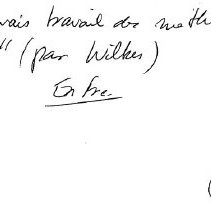 vais travail de math
" (par Wilkes)
En fre.
(